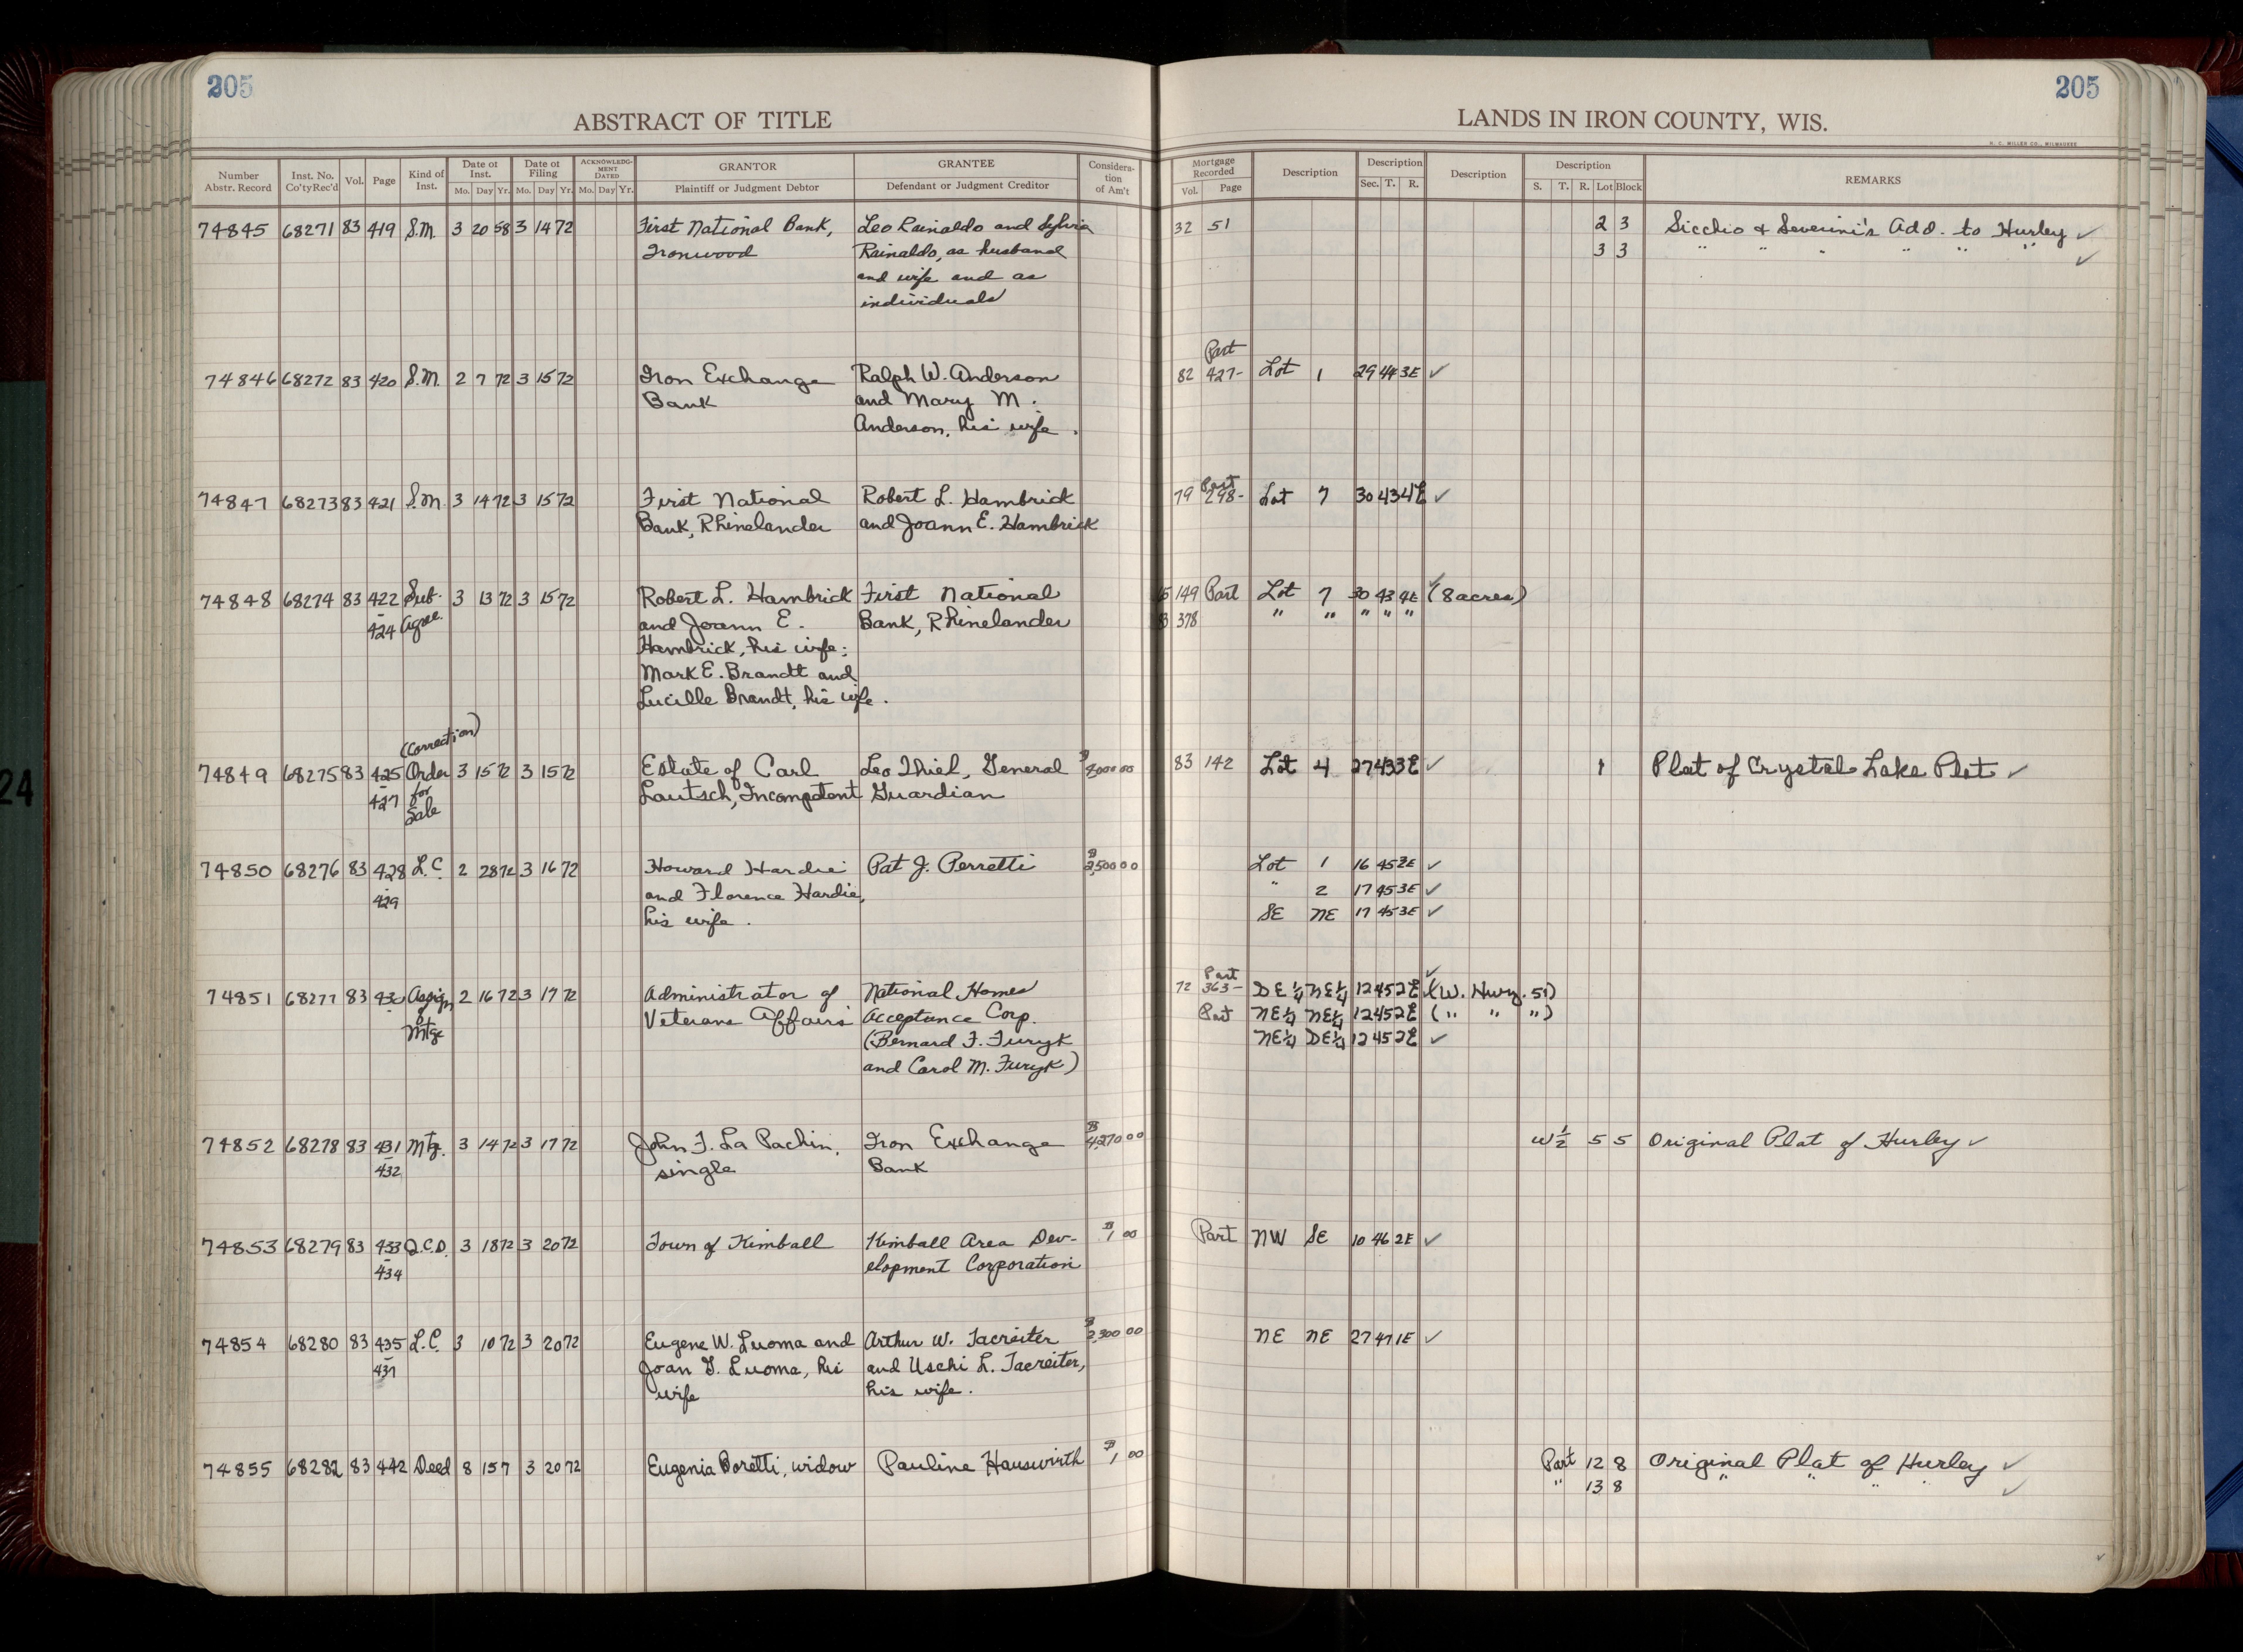 205
205
ABSTRACT OF TITLE
LANDS IN IRON COUNTY, WIS.
H. C. MILLER CO., MILWAUKEE
Number Abstr. Record Inst. No. Co'tyRec'd Vol. Page Kind of Inst. Date of Inst. Mo. Day Yr. Date of Filing Mo. Day Yr. ACKNOWLEDGMENT DATED Mo. Day Yr. GRANTOR Plaintiff or Judgment Debtor GRANTEE Defendant or Judgment Creditor Consideration of Am't Mortgage Recorded Vol. Page Description Description Sec. T. R. Description Description S. T. R. Lot Block REMARKS
74845 68271 83 419 S.M. 3 20 58 3 14 72 First National Bank, Leo Rainaldo and Sylvia 32 51 2 3 Sicchio & Severini's Add. to Hurley ✓
Ironwood Rainaldo, as husband 3 3 " " " " " " ✓
and wife and as
individuals
Part
74846 68272 83 420 S.M. 2 7 72 3 15 72 Iron Exchange Ralph W. Anderson 82 427- Lot 1 29 44 3E ✓
Bank and Mary M.
Anderson, his wife.
Part
74847 68273 83 421 S.M. 3 14 72 3 15 72 First National Robert L. Hambrick 79 298- Lot 7 30 43 4E ✓
Bank, Rhinelander and Joann E. Hambrick
74848 68274 83 422 Sub. 3 13 72 3 15 72 Robert L. Hambrick First National 149 Part Lot 7 30 43 4E ✓ (8 acres)
- 424 Agree. and Joann E. Bank, Rhinelander 378 " " " " "
Hambrick, his wife;
Mark E. Brandt and
Lucille Brandt, his wife.
(Correction)
74849 68275 83 425 Order 3 15 72 3 15 72 Estate of Carl Leo Thiel, General 83 142 Lot 4 27 43 3E ✓ 1 Plat of Crystal Lake Plat ✓
- 427 for Sale Lautsch, Incompetent Guardian
74850 68276 83 428 L.C. 2 28 72 3 16 72 Howard Hardie Pat J. Perretti $2,500 00 Lot 1 16 45 3E ✓
- 429 and Florence Hardie, " 2 17 45 3E ✓
his wife. SE NE 17 45 3E ✓
Part
74851 68277 83 430 Assign. 2 16 72 3 17 72 Administrator of National Homes 72 363- SE¼ NE¼ 12 45 2E ✓ (W. Hwy. 51)
of Veterans Affairs Acceptance Corp. Part NE¼ NE¼ 12 45 2E (" " ")
Mtge (Bernard F. Furyk NE¼ SE¼ 12 45 2E ✓
and Carol M. Furyk)
74852 68278 83 431 Mtg. 3 14 72 3 17 72 John F. La Pachin, Iron Exchange $4,270 00 W½ 5 5 Original Plat of Hurley ✓
- 432 single Bank
74853 68279 83 433 Q.C.D. 3 18 72 3 20 72 Town of Kimball Kimball Area Dev- $1 00 Part NW SE 10 46 2E ✓
- 434 elopment Corporation
74854 68280 83 435 L.C. 3 10 72 3 20 72 Eugene W. Luoma and Arthur W. Tacreiter $2,300 00 NE NE 27 47 1E ✓
- 437 Joan G. Luoma, his and Uschi L. Tacreiter,
wife his wife.
74855 68282 83 442 Deed 8 15 7 3 20 72 Eugenia Boretti, widow Pauline Hauswirth $1 00 Part 12 8 Original Plat of Hurley ✓
" 13 8 " " " " ✓
24